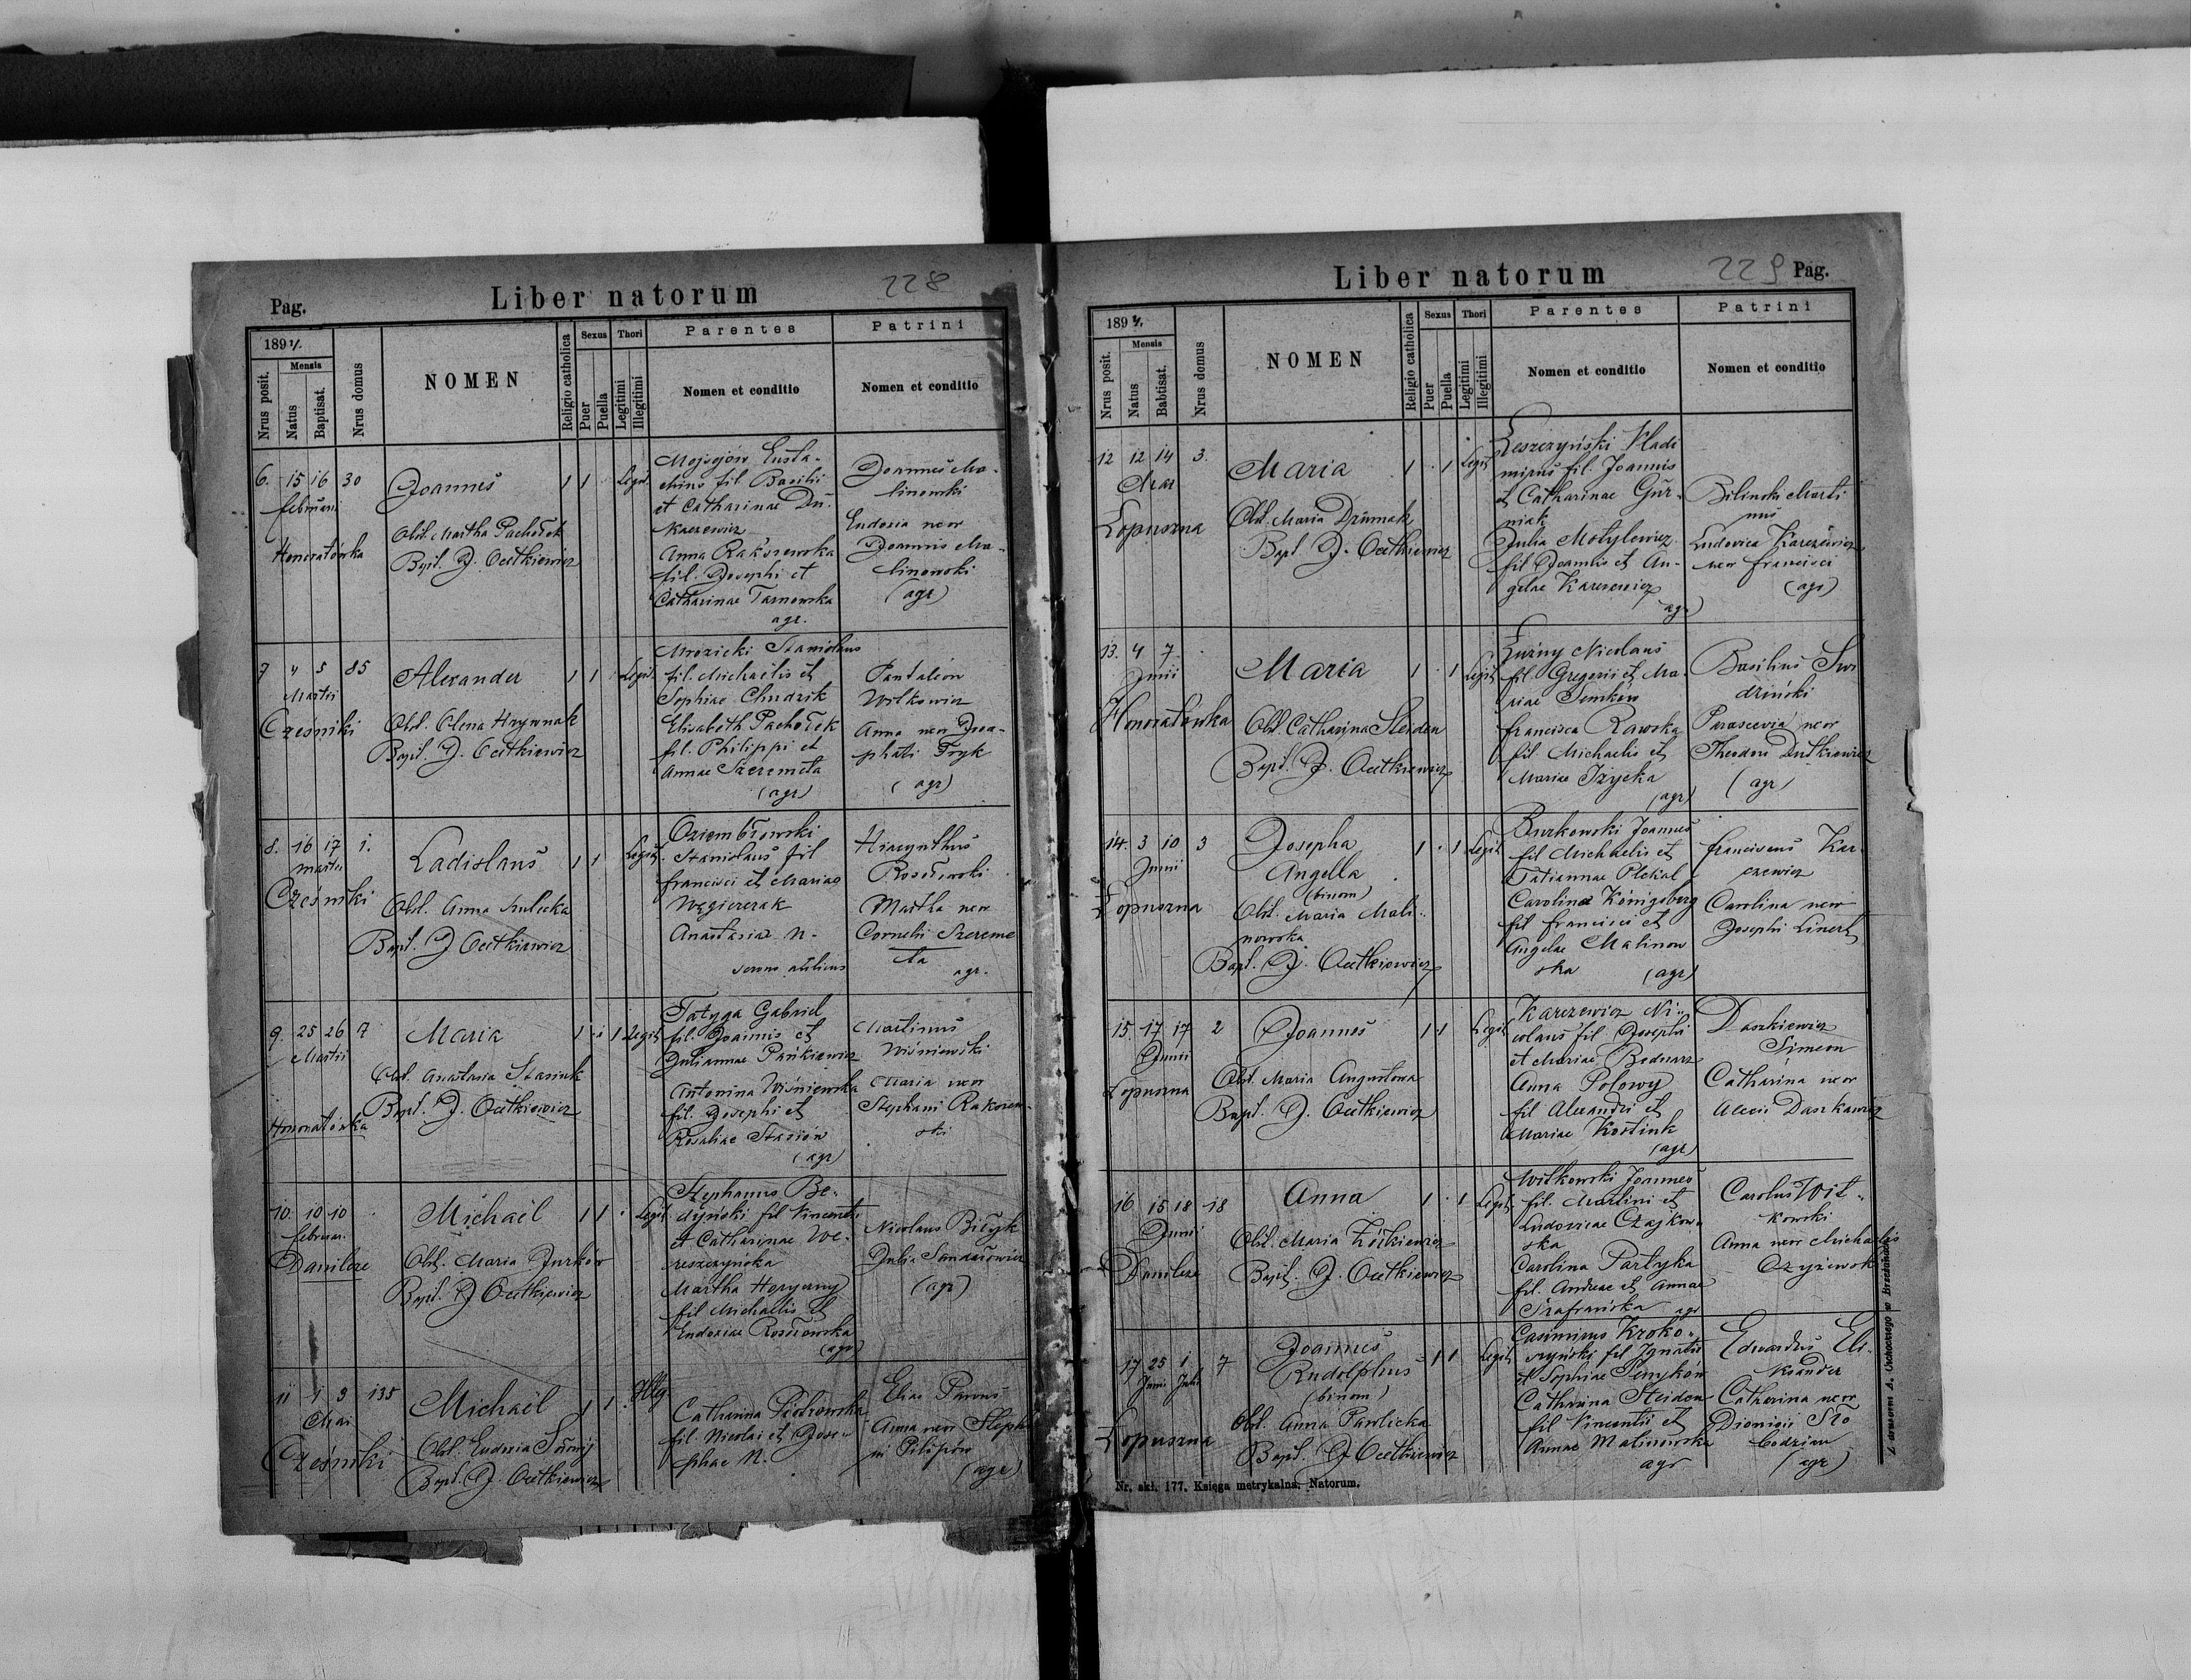 Pag.
Liber natorum
228
1894.
Nrus posit.
Mensis
Natus
Baptisat.
Nrus domus
NOMEN
Religio catholica
Sexus
Puer
Puella
Thori
Legitimi
Illegitimi
Parentes
Nomen et conditio
Patrini
Nomen et conditio
6. 15 16 30
Februarii
Honoratówka
Joannes
Obst. Martha Pachołek
Bapt. J. Ocetkiewicz
1 1 Legit.
Mojsejów Eusta-
chius fil Basilii
et Catharinae Du-
karzewicz
Anna Rakszewska
fil. Josephi et
Catharinae Tarnowska
agr.
Joannes Ma-
linowski
Eudoxia uxor
Joannis Ma-
linowski
(agr)
7 4 5 85
Martii
Cześniki
Alexander
Obst. Olena Hrywnak
Bapt. J. Ocetkiewicz
1 1 Legit.
Mrozicki Stanislaus
fil. Michaëlis et
Sophiae Chudzik
Elisabeth Pachołek
fil. Philippi et
Annae Szeremeta
(agr)
Pantaleon
Witkowicz
Anna uxor Joa-
phati Fryk
(agr)
8. 16 17 1.
Martii
Cześniki
Ladislaus
Obst. Anna Kulicka
Bapt. J Ocetkiewicz
1 1 Legit.
Oziembłowski
Stanislaus fil
Francisci et Mariae
Węgierzak
Anastasia N.
Hiacynthus
Rosołowski
Martha uxor
Cornelii Szereme
ta
agr.
9. 25 26 7
Martii
Honoratówka
Maria
Obst. Anastasia Stasiuk
Bapt. J. Ocetkiewicz
1 1 Legit
Tatyga Gabriel
fil. Joannis et
Juliannae Pańkiewicz
Antonina Wiśniewska
fil. Josephi et
Rosaliae Stasiów
(agr)
Martinus
Wiśniewski
Maria uxor
Stephani Rakszew-
ski
10. 10 10
Februar.
Danilcze
Michaël
Obst. Maria Jurków
Bapt. J Ocetkiewicz
1 1 Legit
Stephanus Be-
dyński fil Vincenti
et Catharinae We-
reszczyńska
Martha Horyczny
fil Michaelis et
Eudoxiae Rosołowska
(agr)
Nicolaus Biłyk
Julia Sandałowicz
(agr)
11 1 3 135
Mai
Cześniki
Michaël
Obst. Eudoxia
Bapt. J. Ocetkiewicz
1 1 Illeg
Catharina Piotrowska
fil. Nicolai et Jose-
phae N.
Elias Parous
Anna uxor Steph
ni Pilipów
(agr)
Liber natorum
229
Pag.
1894.
Nrus posit.
Mensis
Natus
Babtisat.
Nrus domus
NOMEN
Religio catholica
Sexus
Puer
Puella
Thori
Legitimi
Illegitimi
Parentes
Nomen et conditio
Patrini
Nomen et conditio
12 12 14 3
Mai
Łopuszna
Maria
Obst. Maria Dziumak
Bapt J. Ocetkiewicz
1 1 Legit
Leszczyński Vladi
mirus fil. Joannis
et Catharinae Gur-
niak
Julia Motylewicz
fil Joannis et An-
gelae Karczewicz
agr)
Bilinski Marti
nus
Ludovica Karczewicz
uxor Francisci
(agr)
13. 4 7
Junii
Honoratówka
Maria
Obst Catharina Steiden
Bapt. J. Ocetkiewicz
1 1 Legit
Łużny Nicolaus
fil Gregorii et Ma-
riae Semków
Francisca Rawska
fil Michaelis et
Mariae Iżycka
(agr)
Basilius Swi
dziński
Parascevia uxor
Theodori Dutkiewicz
(agr)
14. 3 10 3
Junii
Łopuszna
Josepha
Angella
(binom)
Obst. Maria Mali-
nowska
Bapt. J. Ocetkiewicz
1 1 Legit
Burkowski Joannes
fil Michaelis et
Tatiannae Plekal
Carolina Königsberg
fil Francisci et
Angelae Malinow
ska (agr)
Franciscus Kar-
czewicz
Carolina uxor
Josephi Linert
15. 17 17 2
Junii
Łopuszna
Joannes
Obst. Maria Augustowa
Bapt. J. Ocetkiewicz
1 1 Legit
Karczewicz Ni-
colaus fil Josephi
et Mariae Bednarz
Anna Połowy
fil Alexandri et
Mariae Kostiuk
(agr)
Daszkiewicz
Simeon
Catharina uxor
Alexii Daszkiewicz
16 15 18 18
Junii
Danilcze
Anna
Obst. Maria Żółkiewicz
Bapt. J. Ocetkiewicz
1 1 Legit
Witkowski Joannes
fil. Martini et
Ludovicae Czajkow-
ska
Carolina Partyka
fil. Andreae et Annae
Szafrańska agr
Carolus Wit-
kowski
Anna uxor Michaelis
Czyżewsk
17 25 1 7
Junii Julii
Łopuszna
Joannes
Rudolphus
(binom)
Obst. Anna Pawlicka
Bapt. J Ocetkiewicz
1 1 Legit
Casimirus Kroko-
szyński fil Ignatii
et Sophiae Semyków
Catharina Steiden
fil Vincentii et
Annae Malinowska
agr
Eduardus Ele-
Catherina uxor
Dionisii Sło
bodzian
(agr)
Nr. skł. 177. Księga metrykalna. Natorum.
Z drukarni A. Uschockiego w Brzeżanach